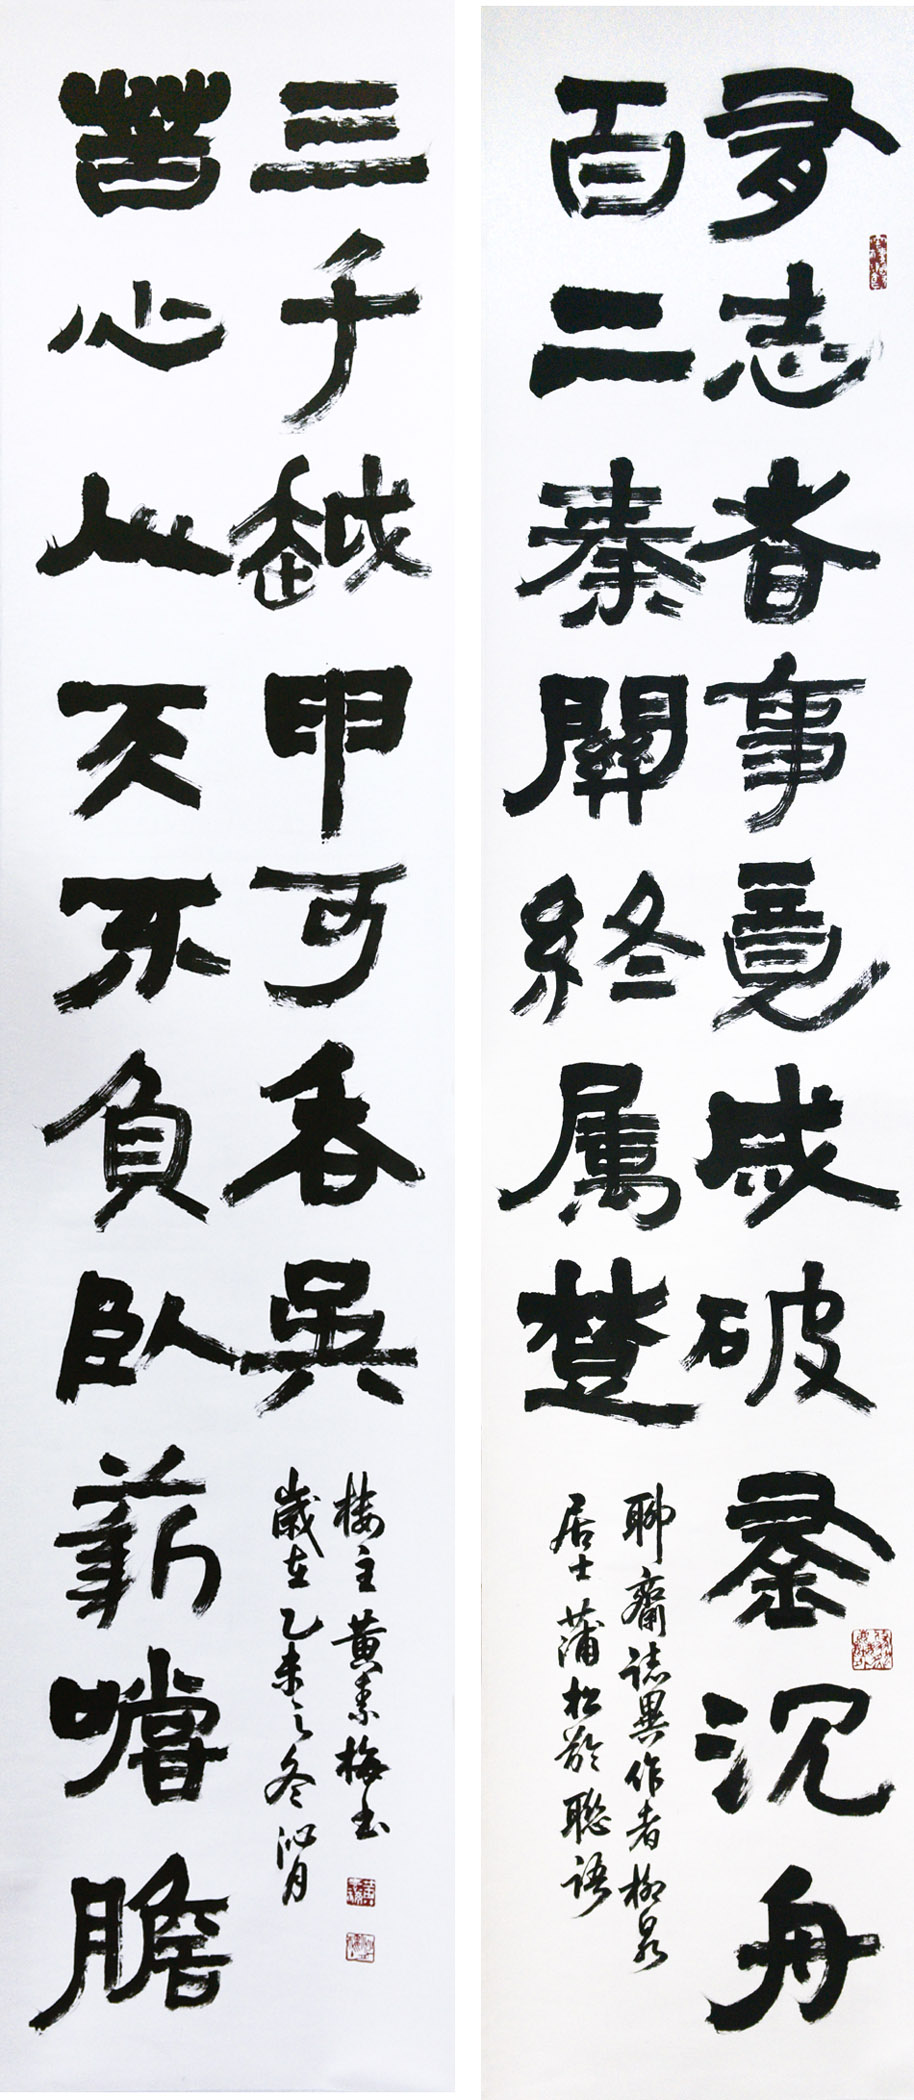 有志者事竟成破釜沉舟
百二秦關終属楚
聊齋誌異作者柳泉
居士蒲松齡聯語
苦心人天不負臥薪嚐膽
三千越甲可吞吳
歲在乙未之冬沁月
樓主黃素梅書